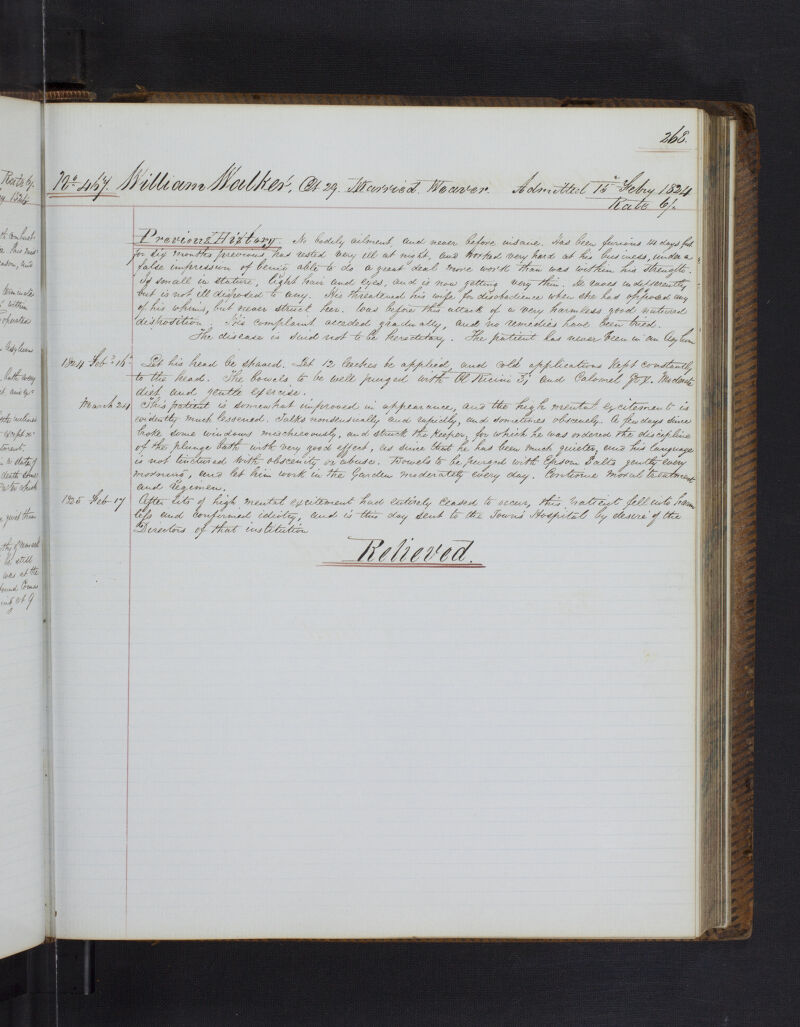 268.
No 467 William Walker, Æt 29. Married. Weaver. Admitted 15th Feby 1824
Rate 6/.
Previous History No bodily ailment and never before insane. Has been furious 14 days past
for six months previous, has rested very ill at night, and worked very hard at his business, under a
false impression of being able to do a great deal more work than was within his strength.
Is small in stature, light hair and eyes, and is now getting very thin. He eats indifferently
but is not ill disposed to any. His threatened his wife for disobedience when she has opposed any
of his whims, but never struck her. Was before this attack of a very harmless good natured
disposition. His complaint acceded gradually, and no remedies have been tried.
The disease is said not to be hereditary. The patient has never been in an Asylum
1824 Feby 15th Let his head be shaved. Let 12 leeches be applied and cold applications kept constantly
to the head. The bowels to be well purged with Ol Ricini and Calomel gr X. Moderate
diet and gentle exercise.
March 24 This patient is somewhat improved in appearance, and the high mental excitement is
evidently much lessened. Talks nonsensically and rapidly, and sometimes obscenely. A few days since
broke some windows mischievously, and struck the Keeper, for which he was ordered the discipline
of the plunge bath with very good effect, as since that he has been much quieter, and his language
is not tinctured with obscenity or abuse. Bowels to be purged with Epsom Salts gently every
morning, and let him work in the Garden moderately every day. Continue moral treatment
and Regimen.
1825 Feb 17 After fits of high mental excitement had entirely ceased to occur, this patient fell into harm
less and confirmed idiotcy, and is this day sent to the Towns Hospital by desire of the
Directors of that institution
Relieved.